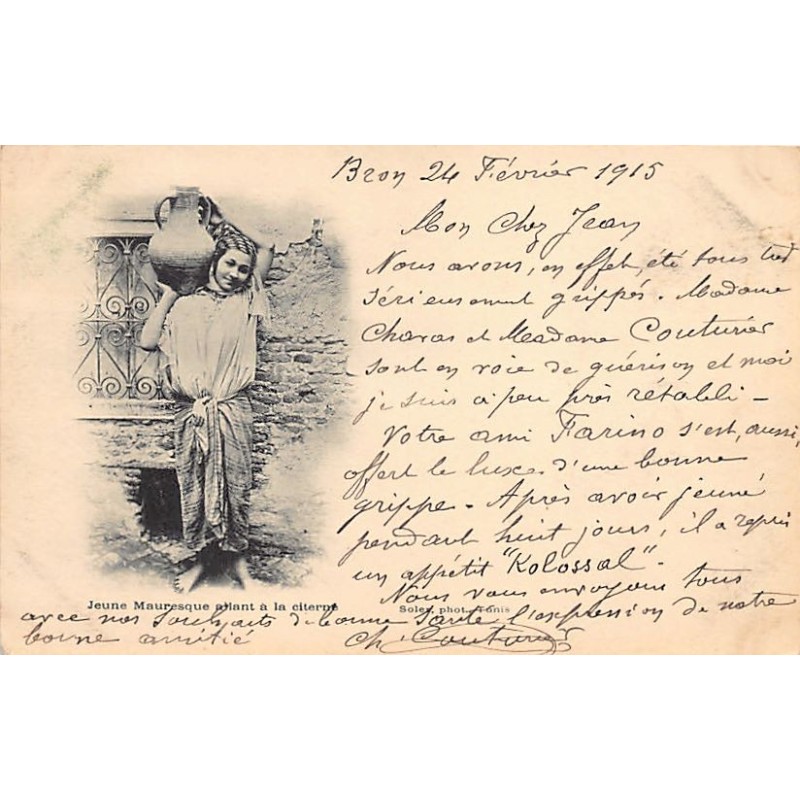 Bron 24 Février 1915
Mon cher Jean
Nous avons, en effet, été tous très
sérieusement grippés. Madame
Charas et Madame Couturier
sont en voie de guérison et moi
je suis à peu près rétabli -
Votre ami Farino s'est, aussi,
offert le luxe d'une bonne
grippe. Après avoir jeuné
pendant huit jours, il a repris
un appétit "Kolossal".
Nous vous envoyons tous
Jeune Mauresque allant à la citerne
Soler, phot., Tunis
avec nos souhaits de bonne santé l'expression de notre
bonne amitié
Ch. Couturier